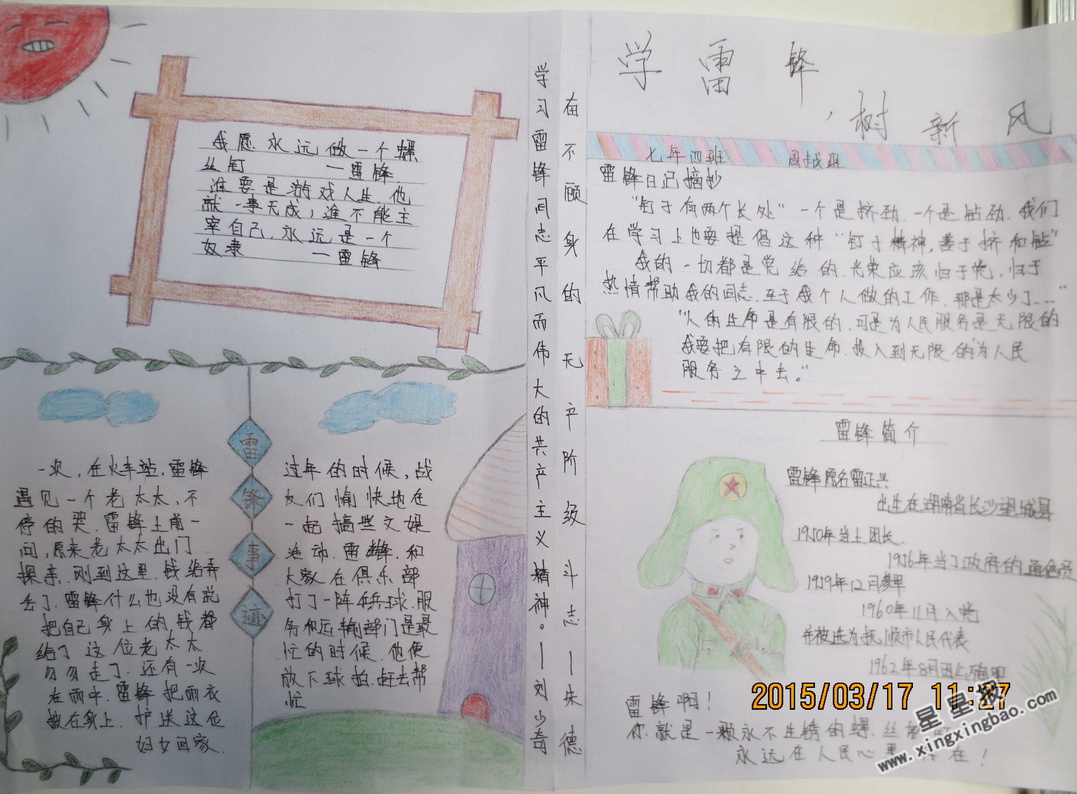 我愿永远做一个螺
丝钉 一雷锋
谁要是游戏人生,他
就一事无成;谁不能主
宰自己,永远是一个
奴隶 一雷锋
学习雷锋同志平凡而伟大的共产主义精神。一刘少奇
奋不顾身的无产阶级斗志一朱德
学雷锋
,树新风
七年四班
雷锋日记摘抄
"钉子有两个长处"一个是挤劲,一个是钻劲,我们
在学习上也要提倡这种"钉子精神,善于挤和钻"
我的一切都是党给的,光荣应该归于党,归于
热情帮助我的同志,至于我个人做的工作,那是太少了..."
"人的生命是有限的,可是为人民服务是无限的
我要把有限的生命,投入到无限的为人民
服务之中去。"
雷锋事迹
一次,在火车站,雷锋
遇见一个老太太,不
停的哭,雷锋上前一
问,原来老太太出门
探亲,刚到这里,钱给弄
丢了,雷锋什么也没有说
把自己身上的钱都
给了这位老太太
匆匆走了,还有一次
在雨中,雷锋把雨衣
披在身上,护送这位
妇女回家.
过年的时候,战
友们愉快地在
一起搞些文娱
活动,雷锋和
大家在俱乐部
打了一阵乒乓球,服
务和运输部门是最
忙的时候,他便
放下球拍,赶去帮
忙
雷锋简介
雷锋原名雷正兴
出生在湖南省长沙望城县
1950年当上团长.
1956年当了政府的通信员
1959年12月参军
1960年11月入党
并被选为抚顺市人民代表
1962年8月
雷锋啊!
你就是一颗永不生锈的螺丝
永远在人民心里 在!
2015/03/17 11:27
星星报
www.xingxingbao.com